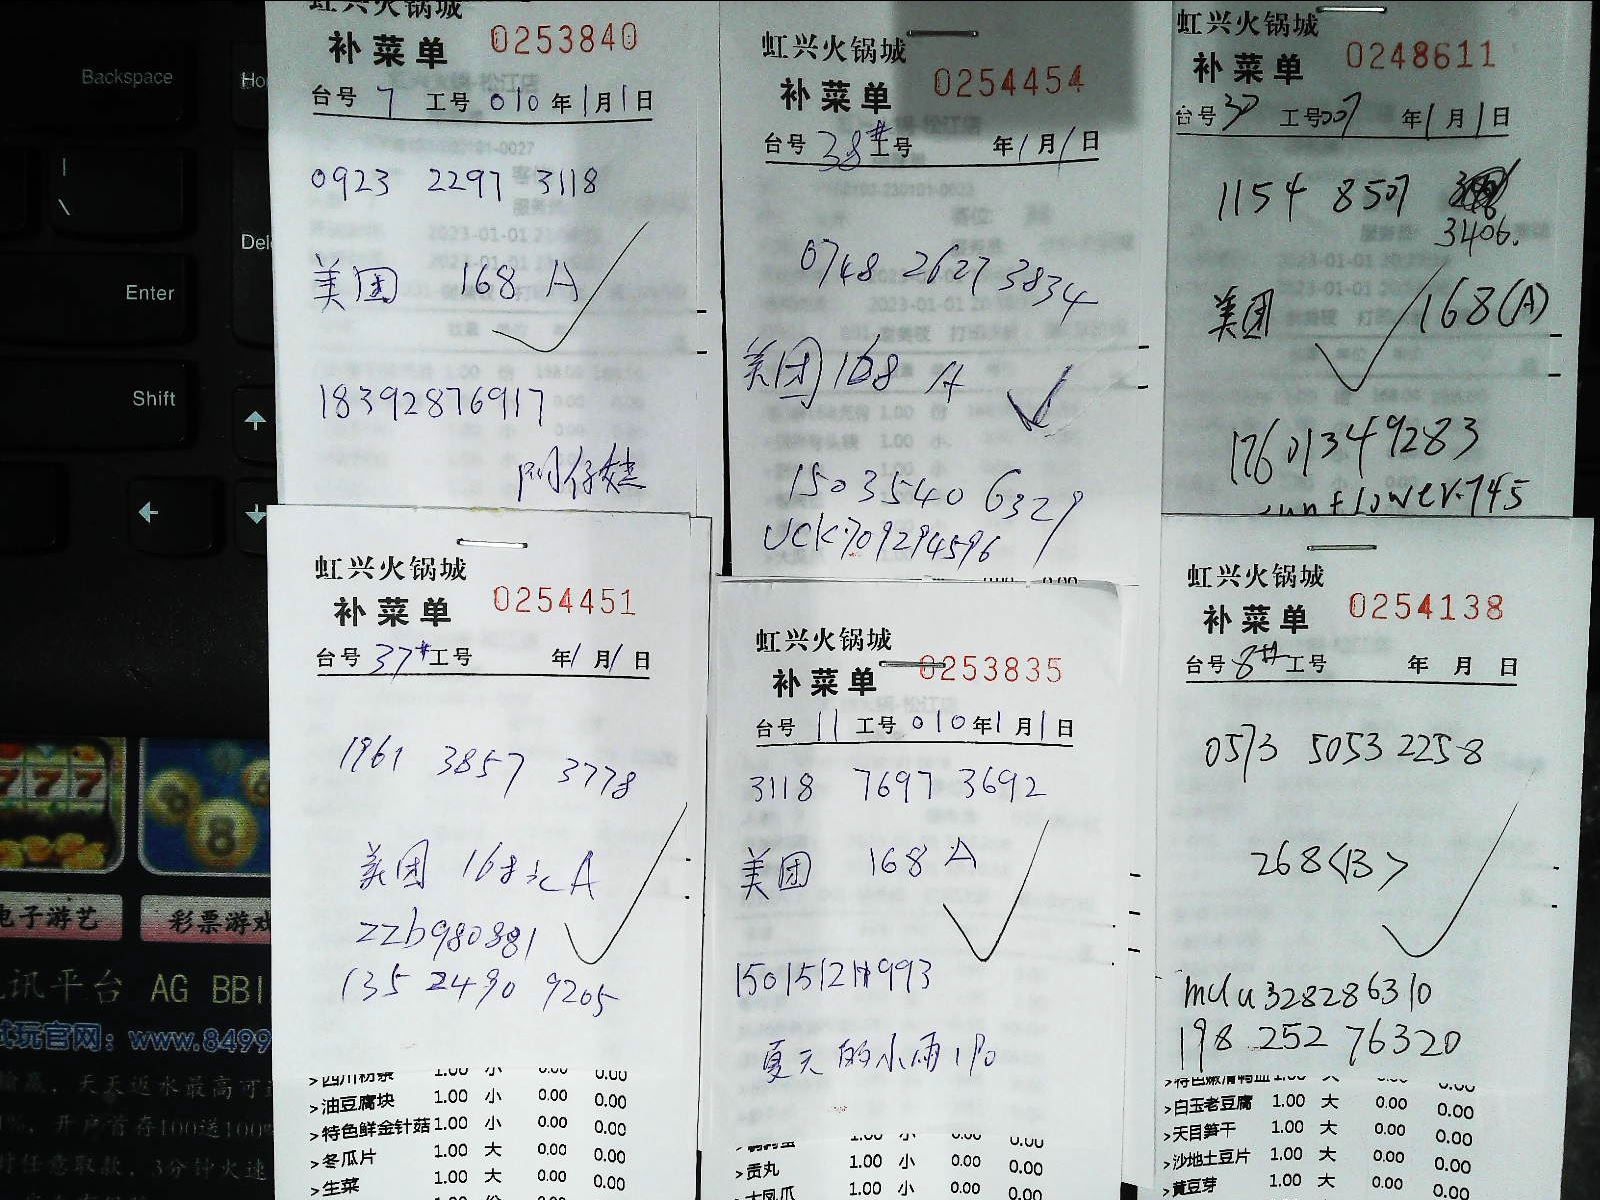 Backspace
Enter
Shift
虹兴火锅城
补菜单 0253840
台号 7 工号 010 年1月1日
0923 2297 3118
美团 168 A
18392876917
虹兴火锅城
补菜单 0254454
台号 38# 工号 年1月1日
0748 2627 3834
美团 168 A
15035406329
UCK709294596
虹兴火锅城
补菜单 0248611
台号 37 工号 007 年1月1日
1154 8507
3406.
美团 168(A)
17601349283
sunflower.745
虹兴火锅城
补菜单 0254451
台号 37# 工号 年1月1日
1961 3857 3778
美团 168元 A
zzb980881
135 2490 9205
>油豆腐块 1.00 小 0.00 0.00
>特色鲜金针菇 1.00 小 0.00 0.00
>冬瓜片 1.00 大 0.00 0.00
>生菜 1.00 大 0.00 0.00
虹兴火锅城
补菜单 0253835
台号 11 工号 010 年1月1日
3118 7697 3692
美团 168 A
夏天的小雨190
>贡丸 1.00 小 0.00 0.00
虹兴火锅城
补菜单 0254138
台号 8# 工号 年 月 日
0573 5053 2258
268<B>
mulu328286310
198 252 76320
>特色嫩滑鸭血 1.00 大 0.00 0.00
>白玉老豆腐 1.00 大 0.00 0.00
>天目笋干 1.00 大 0.00 0.00
>沙地土豆片 1.00 大 0.00 0.00
>黄豆芽 1.00 大 0.00 0.00
777
8
电子游艺 彩票游戏
讯平台 AG BBI
试玩官网：www.8499